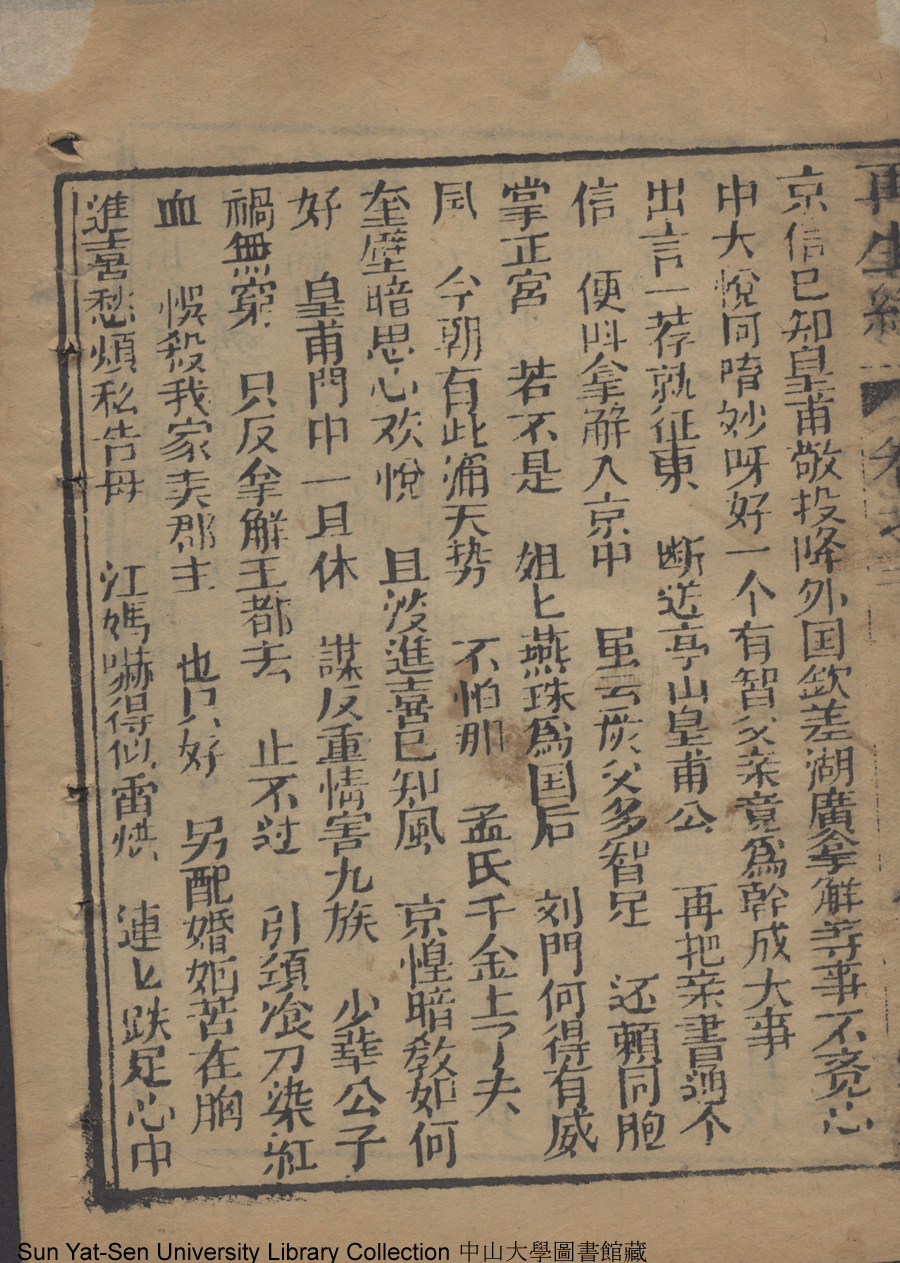 再生緣 卷之二
京信已知皇甫敬投降外国欽差湖廣拿解等事不竟心
中大悅何啃妙呀好一个有智父亲竟為幹成大事
出言一荐就征東 断送亭山皇甫公 再把亲書通个
信 便叫拿解入京中 虽云灰父多智足 还賴同胞
掌正宮 若不是 姐匕燕珠為国后 刘門何得有威
風 今朝有此滔天势 不怕那 孟氏千金上了夫
奎壁暗思心欢悅 且說進喜已知風 京惶暗教如何
好 皇甫門中一旦休 謀反重情害九族 少華公子
禍無窮 只反拿解王都去 止不过 引頸飡刀染紅
血 悞殺我家夫郡主 也只好 另配婚姻苦在胸
進喜愁煩私告母 江媽嚇得似雷烘 連匕跌足心中
Sun Yat-Sen University Library Collection 中山大學圖書館藏